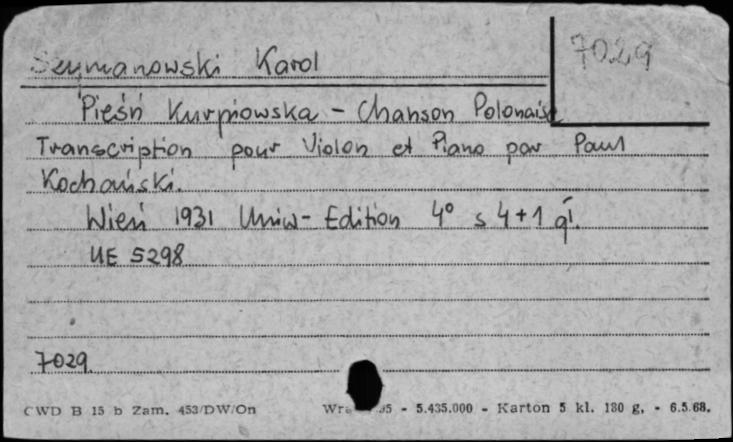 Szymanowski Karol
7029
Pieśń Kurpiowska - Chanson Polonaise
Transcription pour Violon et Piano par Paul
Kochański.
Wień 1931 Uniw- Edition 4° s 4+1 gł.
UE 5298
7029.
CWD B 15 b Zam. 453/DW/On - 5.435.000 - Karton 5 kl. 180 g. - 6.5.68.